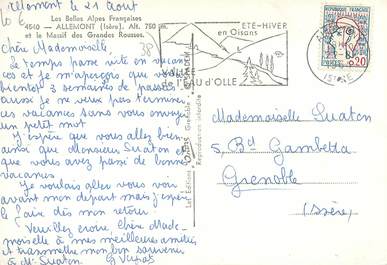 Allemont le 21 août
Les Belles Alpes Françaises
4540 - ALLEMONT (Isère). Alt. 750 m.
et le Massif des Grandes Rousses.
38
Chère Mademoiselle,
Le temps passe vite en vacan-
ces et je m'aperçois que voici
bientôt 3 semaines de passées
aussi je ne veux pas terminer
ces vacances sans vous envoyer
un petit mot.
J'espère que vous allez bien
ainsi que Monsieur Suaton et
que vous avez passé de bonnes
vacances
Je voulais aller vous voir
avant mon départ mais j'espère
le faire dès mon retour.
Veuillez croire, chère Made-
moiselle à mes meilleures amitiés
et transmettre mon bon souvenir
à M. Suaton.
ETE-HIVER
en Oisans
L'EAU D'OLLE
REPUBLIQUE FRANÇAISE
POSTES
0,20
ISERE
Reproduction interdite
Grenoble
Mademoiselle Suaton
5, Bd Gambetta
Grenoble
(Isère)